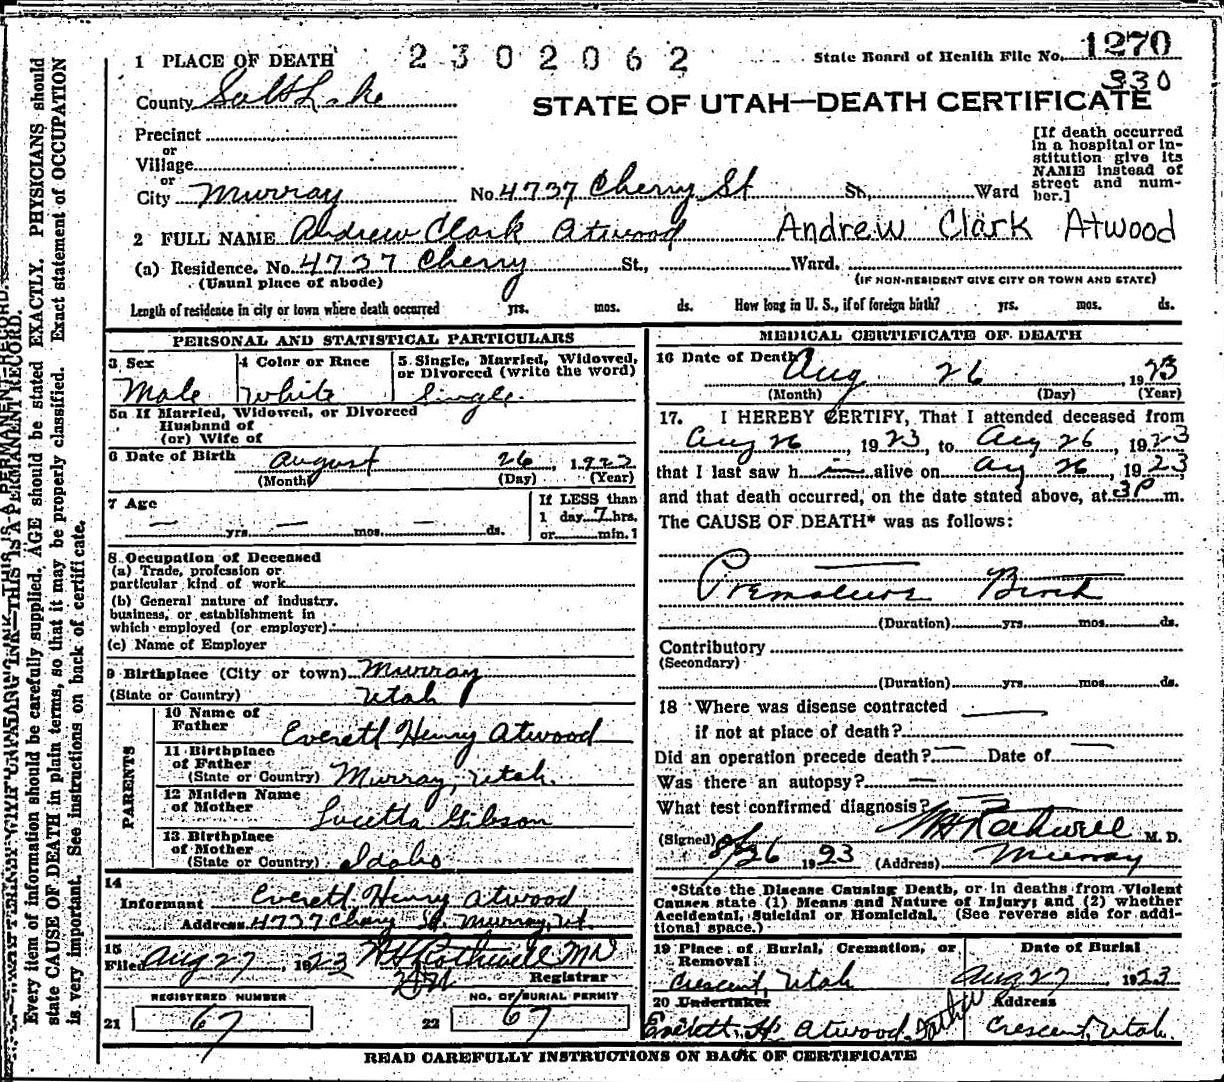 1 PLACE OF DEATH 2302062 State Board of Health File No. 1270
330
County Salt Lake STATE OF UTAH—DEATH CERTIFICATE
Precinct
or
Village
or
City Murray No. 4737 Cherry St St., Ward
[If death occurred in a hospital or in-
stitution give its
NAME instead of
street and num-
ber.]
2 FULL NAME Andrew Clark Atwood Andrew Clark Atwood
(a) Residence. No. 4737 Cherry St., Ward.
(Usual place of abode) (IF NON-RESIDENT GIVE CITY OR TOWN AND STATE)
Length of residence in city or town where death occurred yrs. mos. ds. How long in U. S., if of foreign birth? yrs. mos. ds.
PERSONAL AND STATISTICAL PARTICULARS
3 Sex 4 Color or Race 5 Single, Married, Widowed,
or Divorced (write the word)
Male White Single
5a If Married, Widowed, or Divorced
Husband of
(or) Wife of
6 Date of Birth August 26, 1922
(Month) (Day) (Year)
7 Age — yrs. — mos. — ds.
If LESS than
1 day 7 hrs.
or min.1
8 Occupation of Deceased
(a) Trade, profession or
particular kind of work
(b) General nature of industry,
business, or establishment in
which employed (or employer)
(c) Name of Employer
9 Birthplace (City or town) Murray
(State or Country) Utah
PARENTS
10 Name of
Father Everett Henry Atwood
11 Birthplace
of Father
(State or Country) Murray, Utah.
12 Maiden Name
of Mother Lucetta Gibson
13 Birthplace
of Mother
(State or Country) Idaho
14
Informant Everett Henry Atwood
Address 4737 Cherry St. Murray, Ut.
15
Filed Aug 27, 1923 W H Rothwell MD
Registrar
REGISTERED NUMBER NO. OF BURIAL PERMIT
21 67 22 67
MEDICAL CERTIFICATE OF DEATH
16 Date of Death Aug 26, 1923
(Month) (Day) (Year)
17. I HEREBY CERTIFY, That I attended deceased from
Aug 26, 1923, to Aug 26, 1923
that I last saw h im alive on Aug 26, 1923
and that death occurred, on the date stated above, at 3P m.
The CAUSE OF DEATH* was as follows:
Premature Birth
(Duration) yrs. mos. ds.
Contributory
(Secondary)
(Duration) yrs. mos. ds.
18 Where was disease contracted
if not at place of death?
Did an operation precede death? — Date of —
Was there an autopsy? —
What test confirmed diagnosis? —
(Signed) W H Rothwell M. D.
8/26 1923 (Address) Murray
*State the Disease Causing Death, or in deaths from Violent
Causes state (1) Means and Nature of Injury; and (2) whether
Accidental, Suicidal or Homicidal. (See reverse side for addi-
tional space.)
19 Place of Burial, Cremation, or
Removal Date of Burial
Crescent, Utah Aug 27 1923
20 Undertaker Address
Everett H. Atwood. Father Crescent, Utah.
READ CAREFULLY INSTRUCTIONS ON BACK OF CERTIFICATE
Every item of information should be carefully supplied. AGE should be stated EXACTLY. PHYSICIANS should
state CAUSE OF DEATH in plain terms, so that it may be properly classified. Exact statement of OCCUPATION
is very important. See instructions on back of certificate.